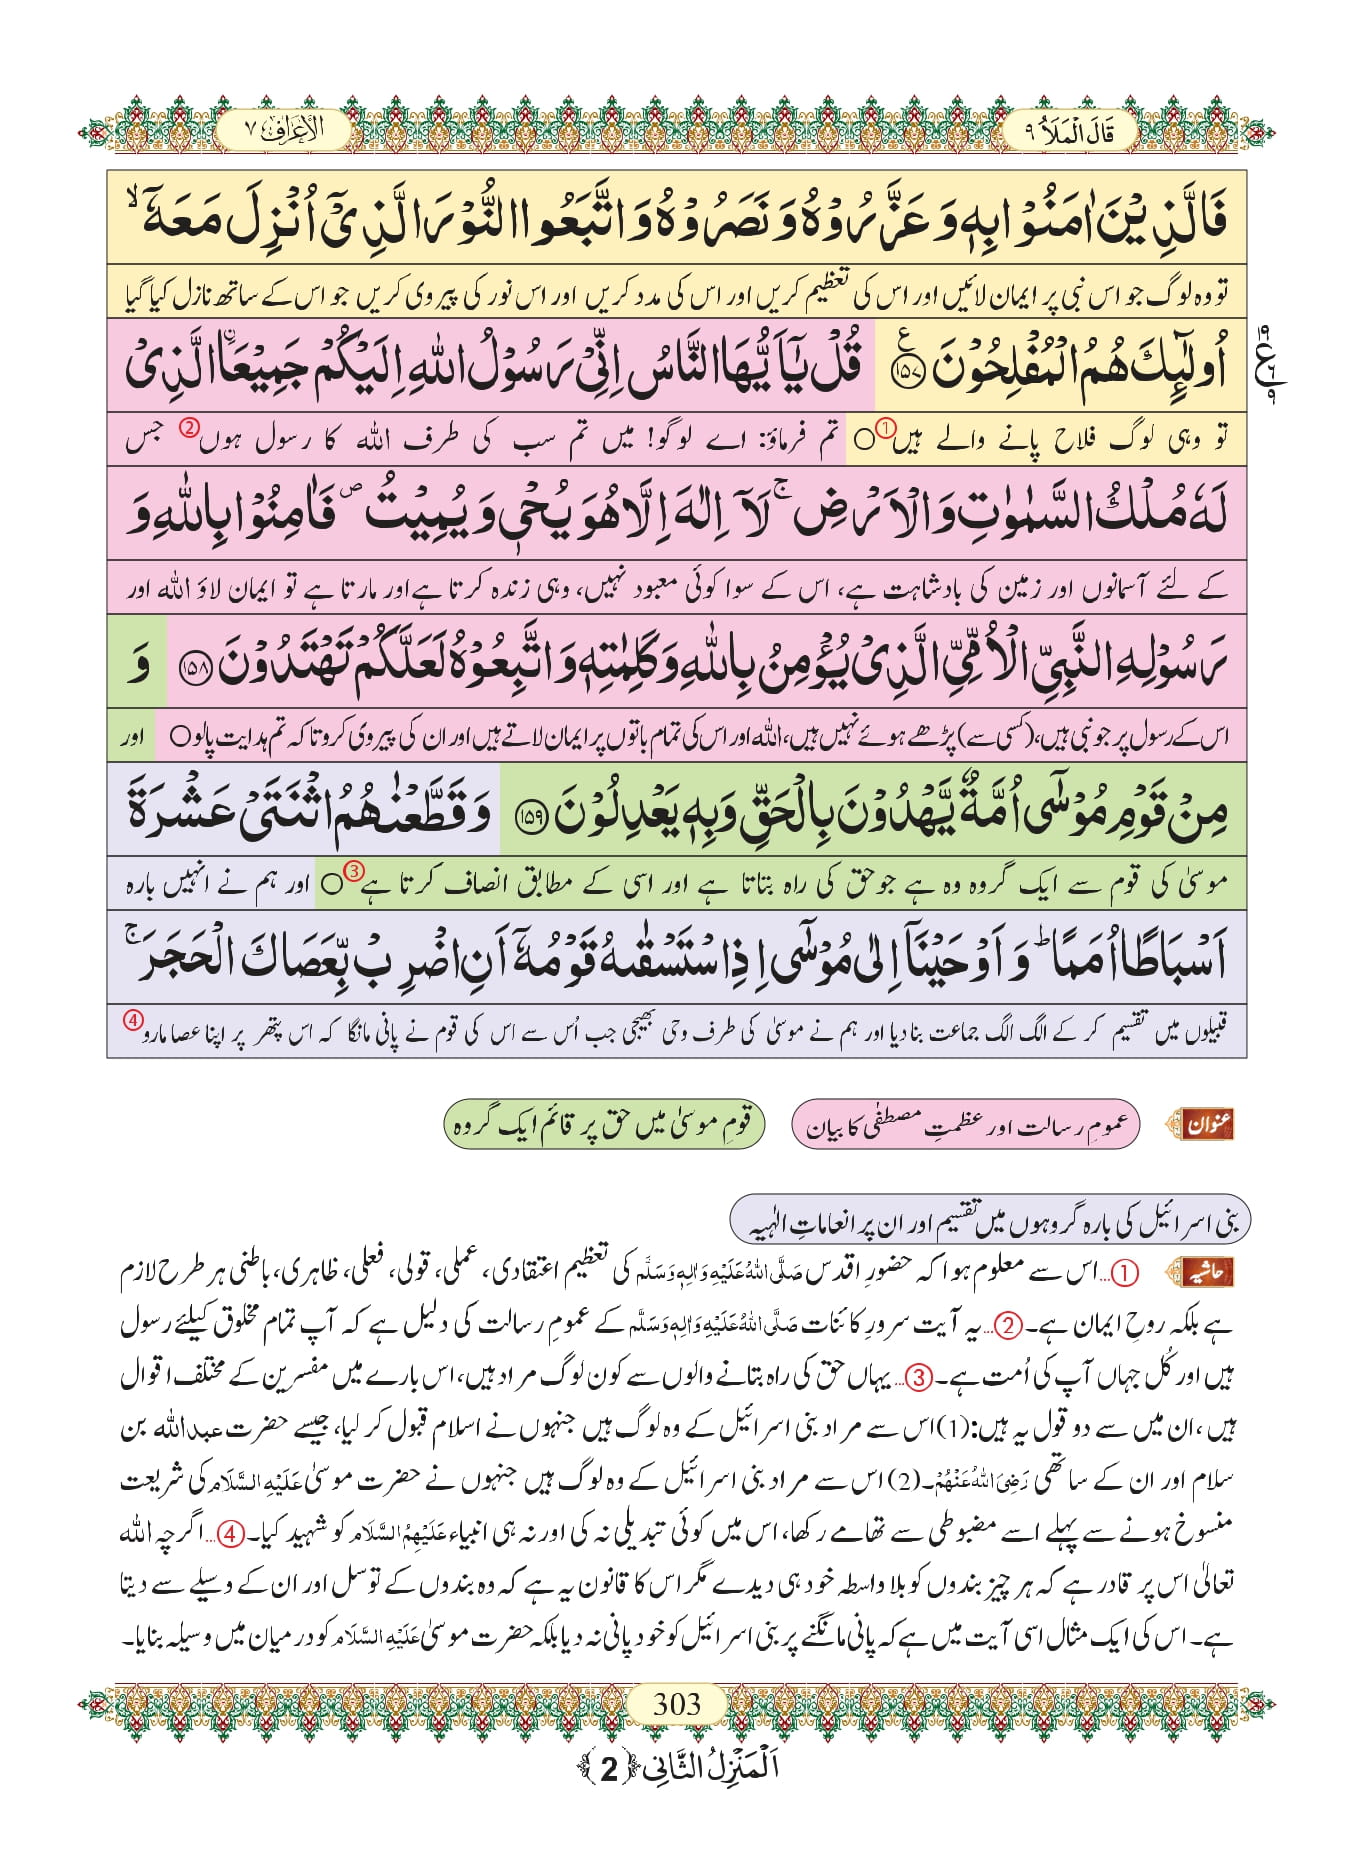 قَالَ الْمَلَاُ ٩
الْاَعْرَاف ٧
فَالَّذِیْنَ اٰمَنُوْا بِهٖ وَ عَزَّرُوْهُ وَ نَصَرُوْهُ وَ اتَّبَعُوا النُّوْرَ الَّذِیْۤ اُنْزِلَ مَعَهٗۤ ۙ
تو وہ لوگ جو اس نبی پر ایمان لائیں اور اس کی تعظیم کریں اور اس کی مدد کریں اور اس نور کی پیروی کریں جو اس کے ساتھ نازل کیا گیا
اُولٰٓىٕكَ هُمُ الْمُفْلِحُوْنَ ﴿۱۵۷﴾ ع قُلْ یٰۤاَیُّهَا النَّاسُ اِنِّیْ رَسُوْلُ اللّٰهِ اِلَیْكُمْ جَمِیْعَاۨ الَّذِیْ
تو وہی لوگ فلاح پانے والے ہیں① ○ تم فرماؤ: اے لوگو! میں تم سب کی طرف اللہ کا رسول ہوں② جس
لَهٗ مُلْكُ السَّمٰوٰتِ وَ الْاَرْضِ ۚ لَاۤ اِلٰهَ اِلَّا هُوَ یُحْیٖ وَ یُمِیْتُ ۪ فَاٰمِنُوْا بِاللّٰهِ وَ
کے لئے آسمانوں اور زمین کی بادشاہت ہے، اس کے سوا کوئی معبود نہیں، وہی زندہ کرتا ہے اور مارتا ہے تو ایمان لاؤ اللہ اور
رَسُوْلِهِ النَّبِیِّ الْاُمِّیِّ الَّذِیْ یُؤْمِنُ بِاللّٰهِ وَ كَلِمٰتِهٖ وَ اتَّبِعُوْهُ لَعَلَّكُمْ تَهْتَدُوْنَ ﴿۱۵۸﴾ وَ
اس کے رسول پر جو نبی ہیں، (کسی سے) پڑھے ہوئے نہیں ہیں، اللہ اور اس کی تمام باتوں پر ایمان لاتے ہیں اور ان کی پیروی کرو تاکہ تم ہدایت پالو ○ اور
مِنْ قَوْمِ مُوْسٰۤى اُمَّةٌ یَّهْدُوْنَ بِالْحَقِّ وَ بِهٖ یَعْدِلُوْنَ ﴿۱۵۹﴾ وَ قَطَّعْنٰهُمُ اثْنَتَیْ عَشْرَةَ
موسیٰ کی قوم سے ایک گروہ وہ ہے جو حق کی راہ بتاتا ہے اور اسی کے مطابق انصاف کرتا ہے③ ○ اور ہم نے انہیں بارہ
اَسْبَاطًا اُمَمًا ؕ وَ اَوْحَیْنَاۤ اِلٰى مُوْسٰۤى اِذِ اسْتَسْقٰىهُ قَوْمُهٗۤ اَنِ اضْرِبْ بِّعَصَاكَ الْحَجَرَ ۚ
قبیلوں میں تقسیم کر کے الگ الگ جماعت بنا دیا اور ہم نے موسیٰ کی طرف وحی بھیجی جب اُس سے اس کی قوم نے پانی مانگا کہ اس پتھر پر اپنا عصا مارو④
عنوان عمومِ رسالت اور عظمتِ مصطفٰی کا بیان قومِ موسیٰ میں حق پر قائم ایک گروہ
بنی اسرائیل کی بارہ گروہوں میں تقسیم اور ان پر انعاماتِ الٰہیہ
حاشیہ ①...اس سے معلوم ہوا کہ حضورِ اقدس صَلَّی اللّٰہُ عَلَیْہِ وَاٰلِہٖ وَسَلَّم کی تعظیم اعتقادی، عملی، قولی، فعلی، ظاہری، باطنی ہر طرح لازم
ہے بلکہ روحِ ایمان ہے۔ ②...یہ آیت سرورِ کائنات صَلَّی اللّٰہُ عَلَیْہِ وَاٰلِہٖ وَسَلَّم کے عمومِ رسالت کی دلیل ہے کہ آپ تمام مخلوق کیلئے رسول
ہیں اور کُل جہاں آپ کی اُمت ہے۔ ③...یہاں حق کی راہ بتانے والوں سے کون لوگ مراد ہیں، اس بارے میں مفسرین کے مختلف اقوال
ہیں، ان میں سے دو قول یہ ہیں: (1) اس سے مراد بنی اسرائیل کے وہ لوگ ہیں جنہوں نے اسلام قبول کر لیا، جیسے حضرت عبد اللہ بن
سلام اور ان کے ساتھی رَضِیَ اللّٰہُ عَنْہُمْ۔ (2) اس سے مراد بنی اسرائیل کے وہ لوگ ہیں جنہوں نے حضرت موسیٰ عَلَیْہِ السَّلَام کی شریعت
منسوخ ہونے سے پہلے اسے مضبوطی سے تھامے رکھا، اس میں کوئی تبدیلی نہ کی اور نہ ہی انبیاء عَلَیْہِمُ السَّلَام کو شہید کیا۔ ④...اگرچہ اللہ
تعالیٰ اس پر قادر ہے کہ ہر چیز بندوں کو بلا واسطہ خود ہی دیدے مگر اس کا قانون یہ ہے کہ وہ بندوں کے توسل اور ان کے وسیلے سے دیتا
ہے۔ اس کی ایک مثال اسی آیت میں ہے کہ پانی مانگنے پر بنی اسرائیل کو خود پانی نہ دیا بلکہ حضرت موسیٰ عَلَیْہِ السَّلَام کو درمیان میں وسیلہ بنایا۔
303
اَلْمَنْزِلُ الثَّانِی ﴿2﴾